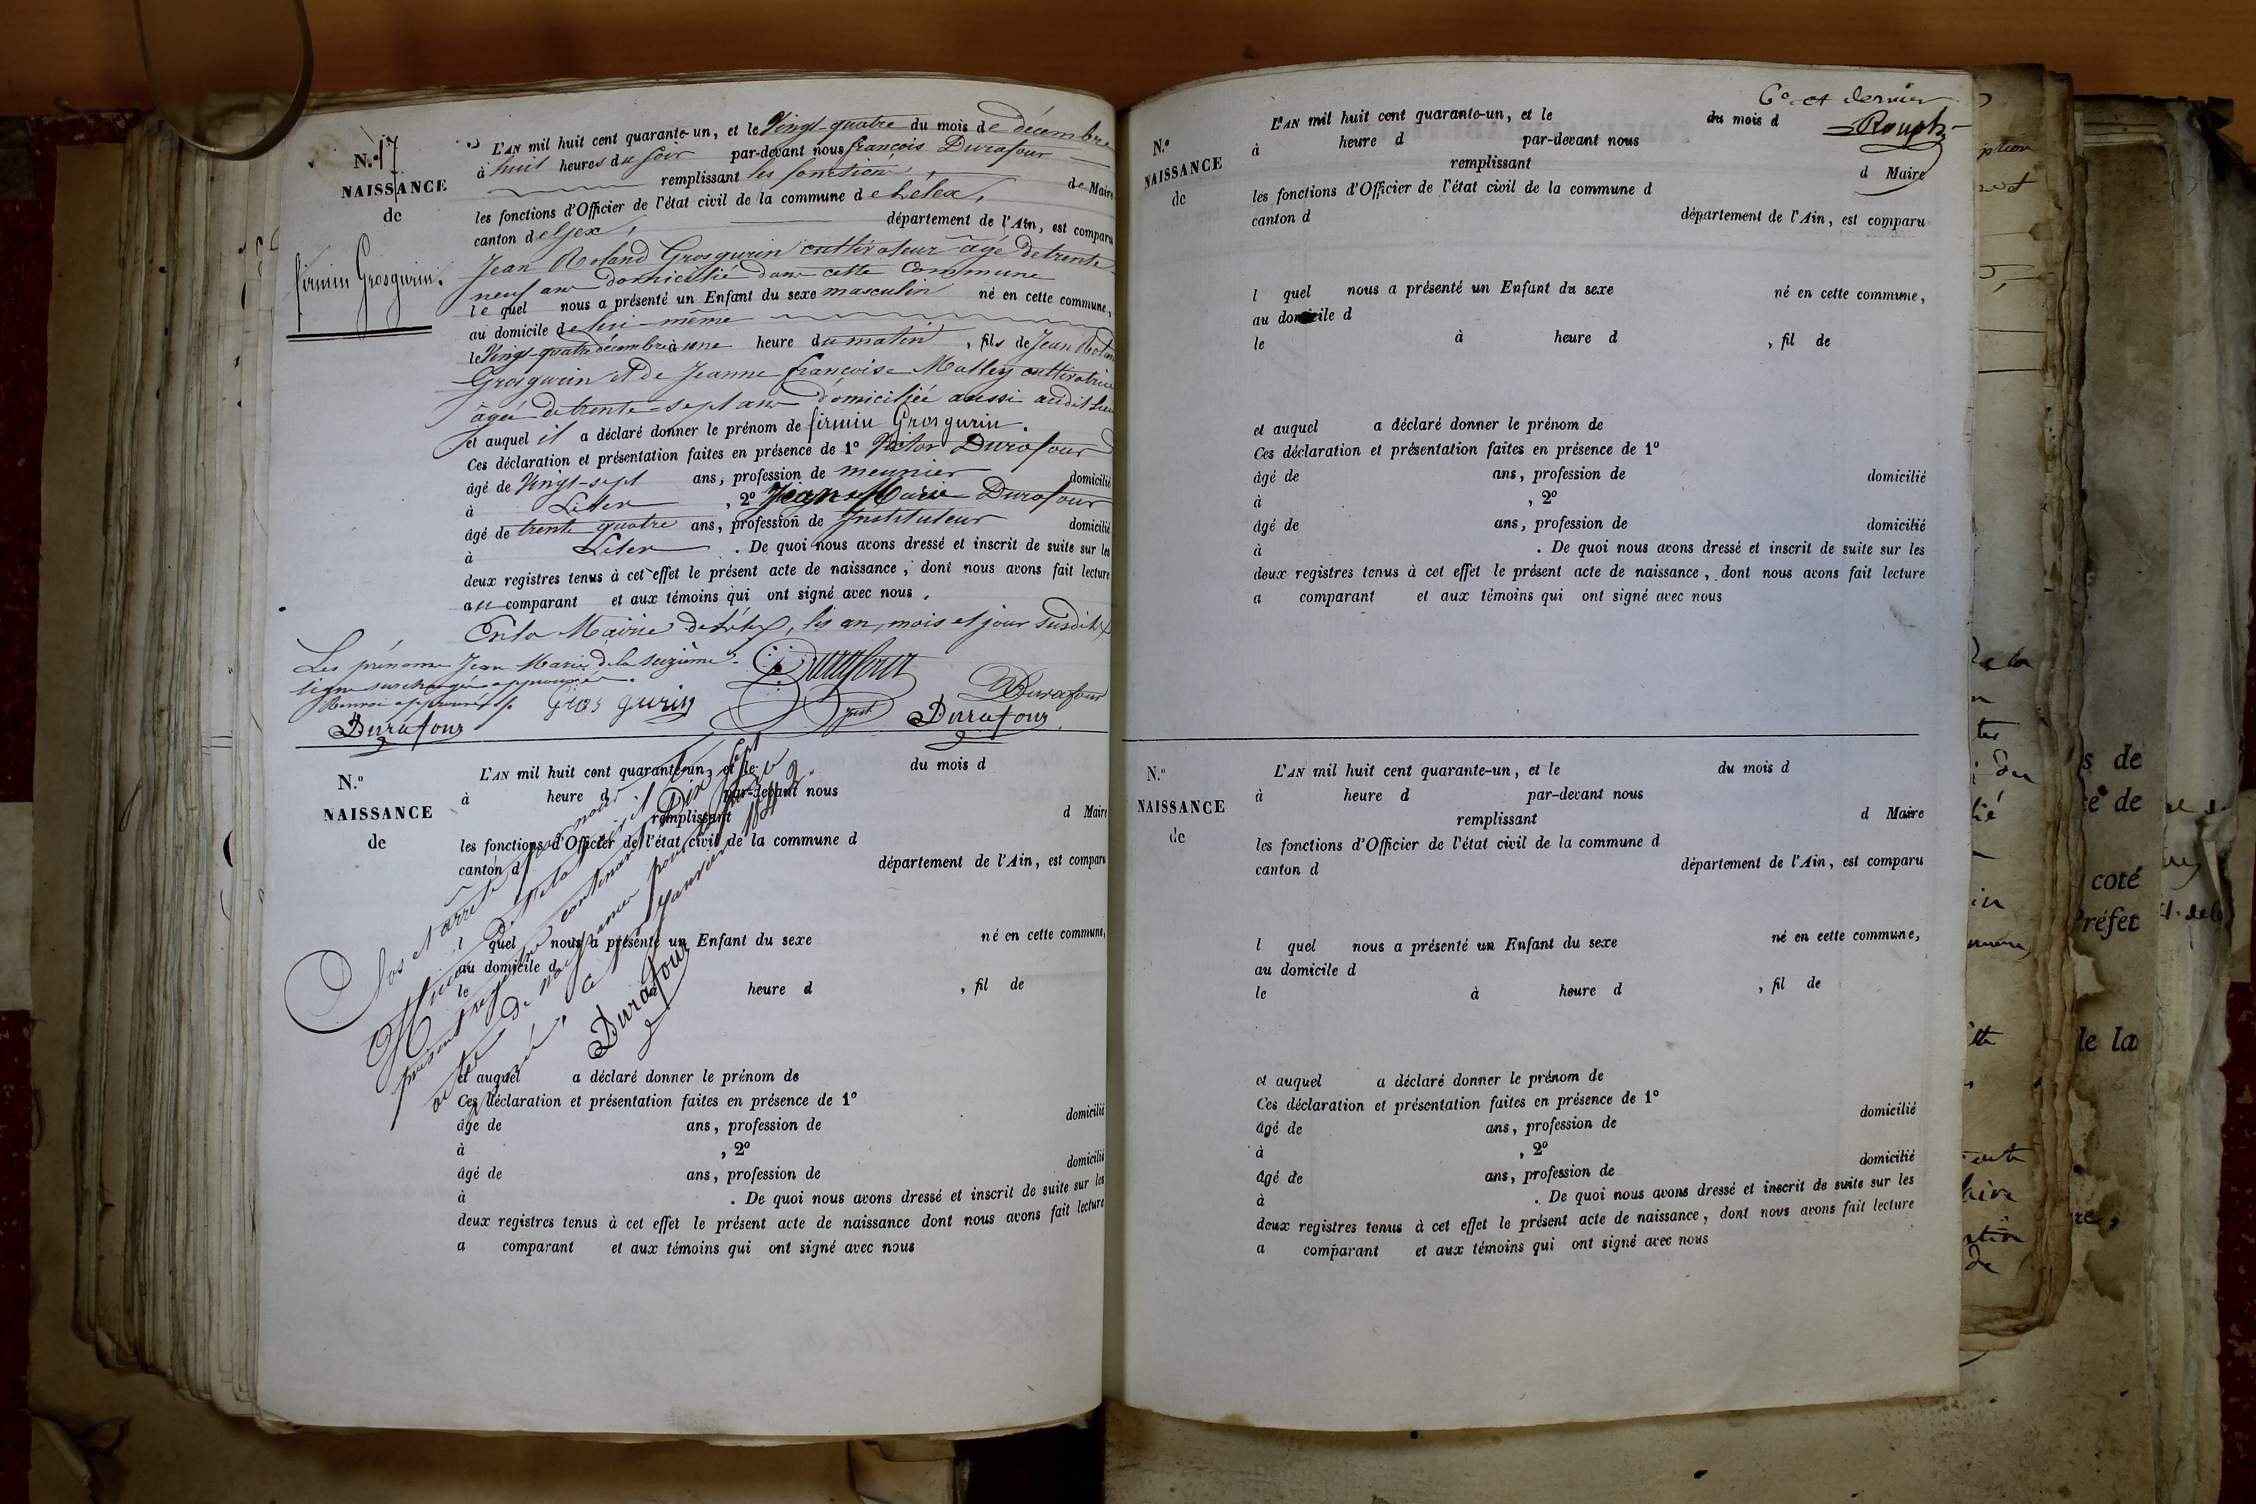 N.° 17
NAISSANCE
de
firmin Grosgurin.
L'AN mil huit cent quarante-un, et le Vingt-quatre du mois de décembre
à huit heures du soir par-devant nous françois Durafour
remplissant les fonctions de Maire
les fonctions d'Officier de l'état civil de la commune de Lelex,
canton de Gex, département de l'Ain, est comparu
Jean Roland Grosgurin cultivateur âgé de trente
neuf ans domicilié dans cette Commune
le quel nous a présenté un Enfant du sexe masculin né en cette commune,
au domicile de lui-même
le Vingt-quatre décembre à une heure du matin, fils de Jean Roland
Grosgurin et de Jeanne françoise Mathey cultivatrice
âgée de trente-sept ans domiciliée aussi audit Lieu
et auquel il a déclaré donner le prénom de firmin Grosgurin.
Ces déclaration et présentation faites en présence de 1° Victor Durafour
âgé de Vingt-sept ans, profession de meunier domicilié
à Lelex, 2° Jean Marie Durafour
âgé de trente quatre ans, profession de Instituteur domicilié
à Lelex. De quoi nous avons dressé et inscrit de suite sur les
deux registres tenus à cet effet le présent acte de naissance, dont nous avons fait lecture
au comparant et aux témoins qui ont signé avec nous.
En la Mairie de Lélex, les an, mois et jour susdits
Les prénoms Jean Marie de la seizième
ligne surchargée approuvée.
Renvoi approuvé
Durafour
Gros gurin
Durafour
Durafour
Durafour
N.°
NAISSANCE
de
L'AN mil huit cent quarante-un, et le du mois d
à heure d par-devant nous
remplissant d Maire
les fonctions d'Officier de l'état civil de la commune d
canton d département de l'Ain, est comparu
l quel nous a présenté un Enfant du sexe né en cette commune,
au domicile d
le heure d , fil de
et auquel a déclaré donner le prénom de
Ces déclaration et présentation faites en présence de 1°
âge de ans, profession de domicilié
à , 2°
âgé de ans, profession de domicilié
à . De quoi nous avons dressé et inscrit de suite sur les
deux registres tenus à cet effet le présent acte de naissance dont nous avons fait lecture
a comparant et aux témoins qui ont signé avec nous
Clos et arrêté par nous
Officier de l'état civil le
présent registre contenant Dix sept
actes de naissance pour
à janvier 1842.
Durafour
6° et dernier
Rouph
N.°
NAISSANCE
de
L'AN mil huit cent quarante-un, et le du mois d
à heure d par-devant nous
remplissant d Maire
les fonctions d'Officier de l'état civil de la commune d
canton d département de l'Ain, est comparu
l quel nous a présenté un Enfant du sexe né en cette commune,
au domicile d
le à heure d , fil de
et auquel a déclaré donner le prénom de
Ces déclaration et présentation faites en présence de 1°
âgé de ans, profession de domicilié
à , 2°
âgé de ans, profession de domicilié
à . De quoi nous avons dressé et inscrit de suite sur les
deux registres tenus à cet effet le présent acte de naissance, dont nous avons fait lecture
a comparant et aux témoins qui ont signé avec nous
N.°
NAISSANCE
de
L'AN mil huit cent quarante-un, et le du mois d
à heure d par-devant nous
remplissant d Maire
les fonctions d'Officier de l'état civil de la commune d
canton d département de l'Ain, est comparu
l quel nous a présenté un Enfant du sexe né en cette commune,
au domicile d
le à heure d , fil de
et auquel a déclaré donner le prénom de
Ces déclaration et présentation faites en présence de 1°
âgé de ans, profession de domicilié
à , 2°
âgé de ans, profession de domicilié
à . De quoi nous avons dressé et inscrit de suite sur les
deux registres tenus à cet effet le présent acte de naissance, dont nous avons fait lecture
a comparant et aux témoins qui ont signé avec nous
s de
de
coté
Préfet
de la